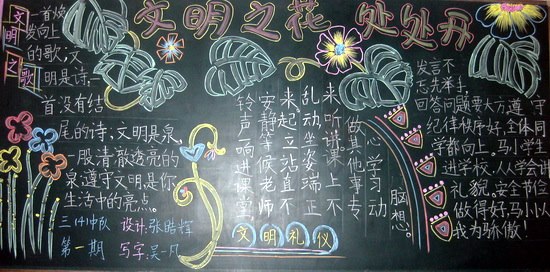 文明之花 处处开
文明之歌
一首焕
发向上
的歌,文
明是诗,一
首没有结
尾的诗;文明是泉,
一股清澈透亮的
泉遵守文明是你
生活中的亮点。
三(4)中队 设计:张皓辉
第一期 写字:吴一凡
铃声一响进课堂
安静等候老师
来起立站直不
乱动坐姿端正
来听讲课上不
做其他事专
心学习动
脑想。
文明礼仪
发言不
忘先举手,
回答问题要大方遵守
纪律秩序好,全体同
学都向上。马小学生
进学校,人人学会讲
礼貌,安全节俭
做得好,马小以
我为骄傲!